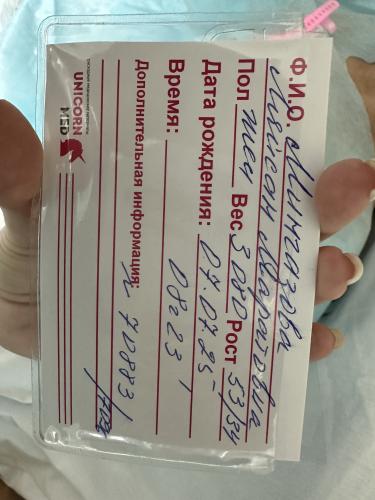 Ф.И.О. Мингазова
Ляйсан Маратовна
Пол жен Вес 3.080 Рост 53/34
Дата рождения: 07.07.25
Время: 08 23
Дополнительная информация:
N 70883
UNICORN
MED